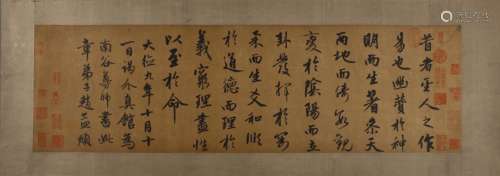 昔者聖人之作
易也幽贊於神
明而生蓍參天
兩地而倚數觀
變於陰陽而立
卦發揮於剛
柔而生爻和順
於道德而理於
義窮理盡性
以至於命
大德九年十月十
一日謁真館為
南谷尊師書此
章弟子趙孟頫